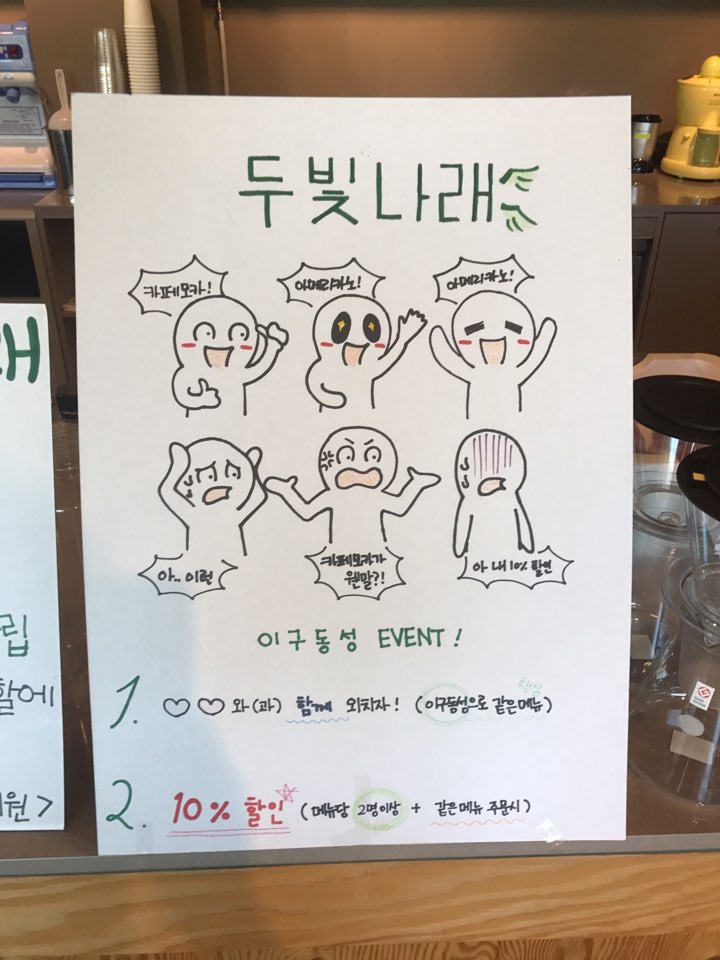 두빛나래
카페모카!
아메리카노!
아메리카노!
아.. 이런
카페모카가
웬말?!
아 내 10% 할인
이구동성 EVENT!
1. ♡♡와(과) 함께 외치자! (이구동성으로 같은메뉴)
핵심
2. 10% 할인 (메뉴당 2명이상 + 같은메뉴 주문시)
래
립
할에
원>